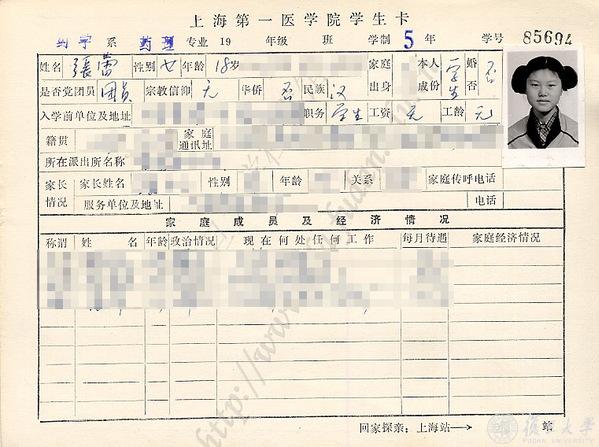 上海第一医学院学生卡
药学系 药理专业 19 年级 班 学制5年 学号 85694
姓名 張雷 性别 女 年龄 18岁 家庭出身 本人成份 学生 婚否 否
是否党团员 团员 宗教信仰 无 华侨 否 民族 汉
入学前单位及地址 职务 学生 工资 元 工龄 元
籍贯 家庭通讯址
所在派出所名称
家长情况 家长姓名 性别 年龄 关系 家庭传呼电话
服务单位及地址 电话
家庭成员及经济情况
称谓 姓名 年龄 政治情况 现在何处任何工作 每月待遇 家庭经济情况
回家探亲：上海站→ 站
復旦大学
FUDAN UNIVERSITY